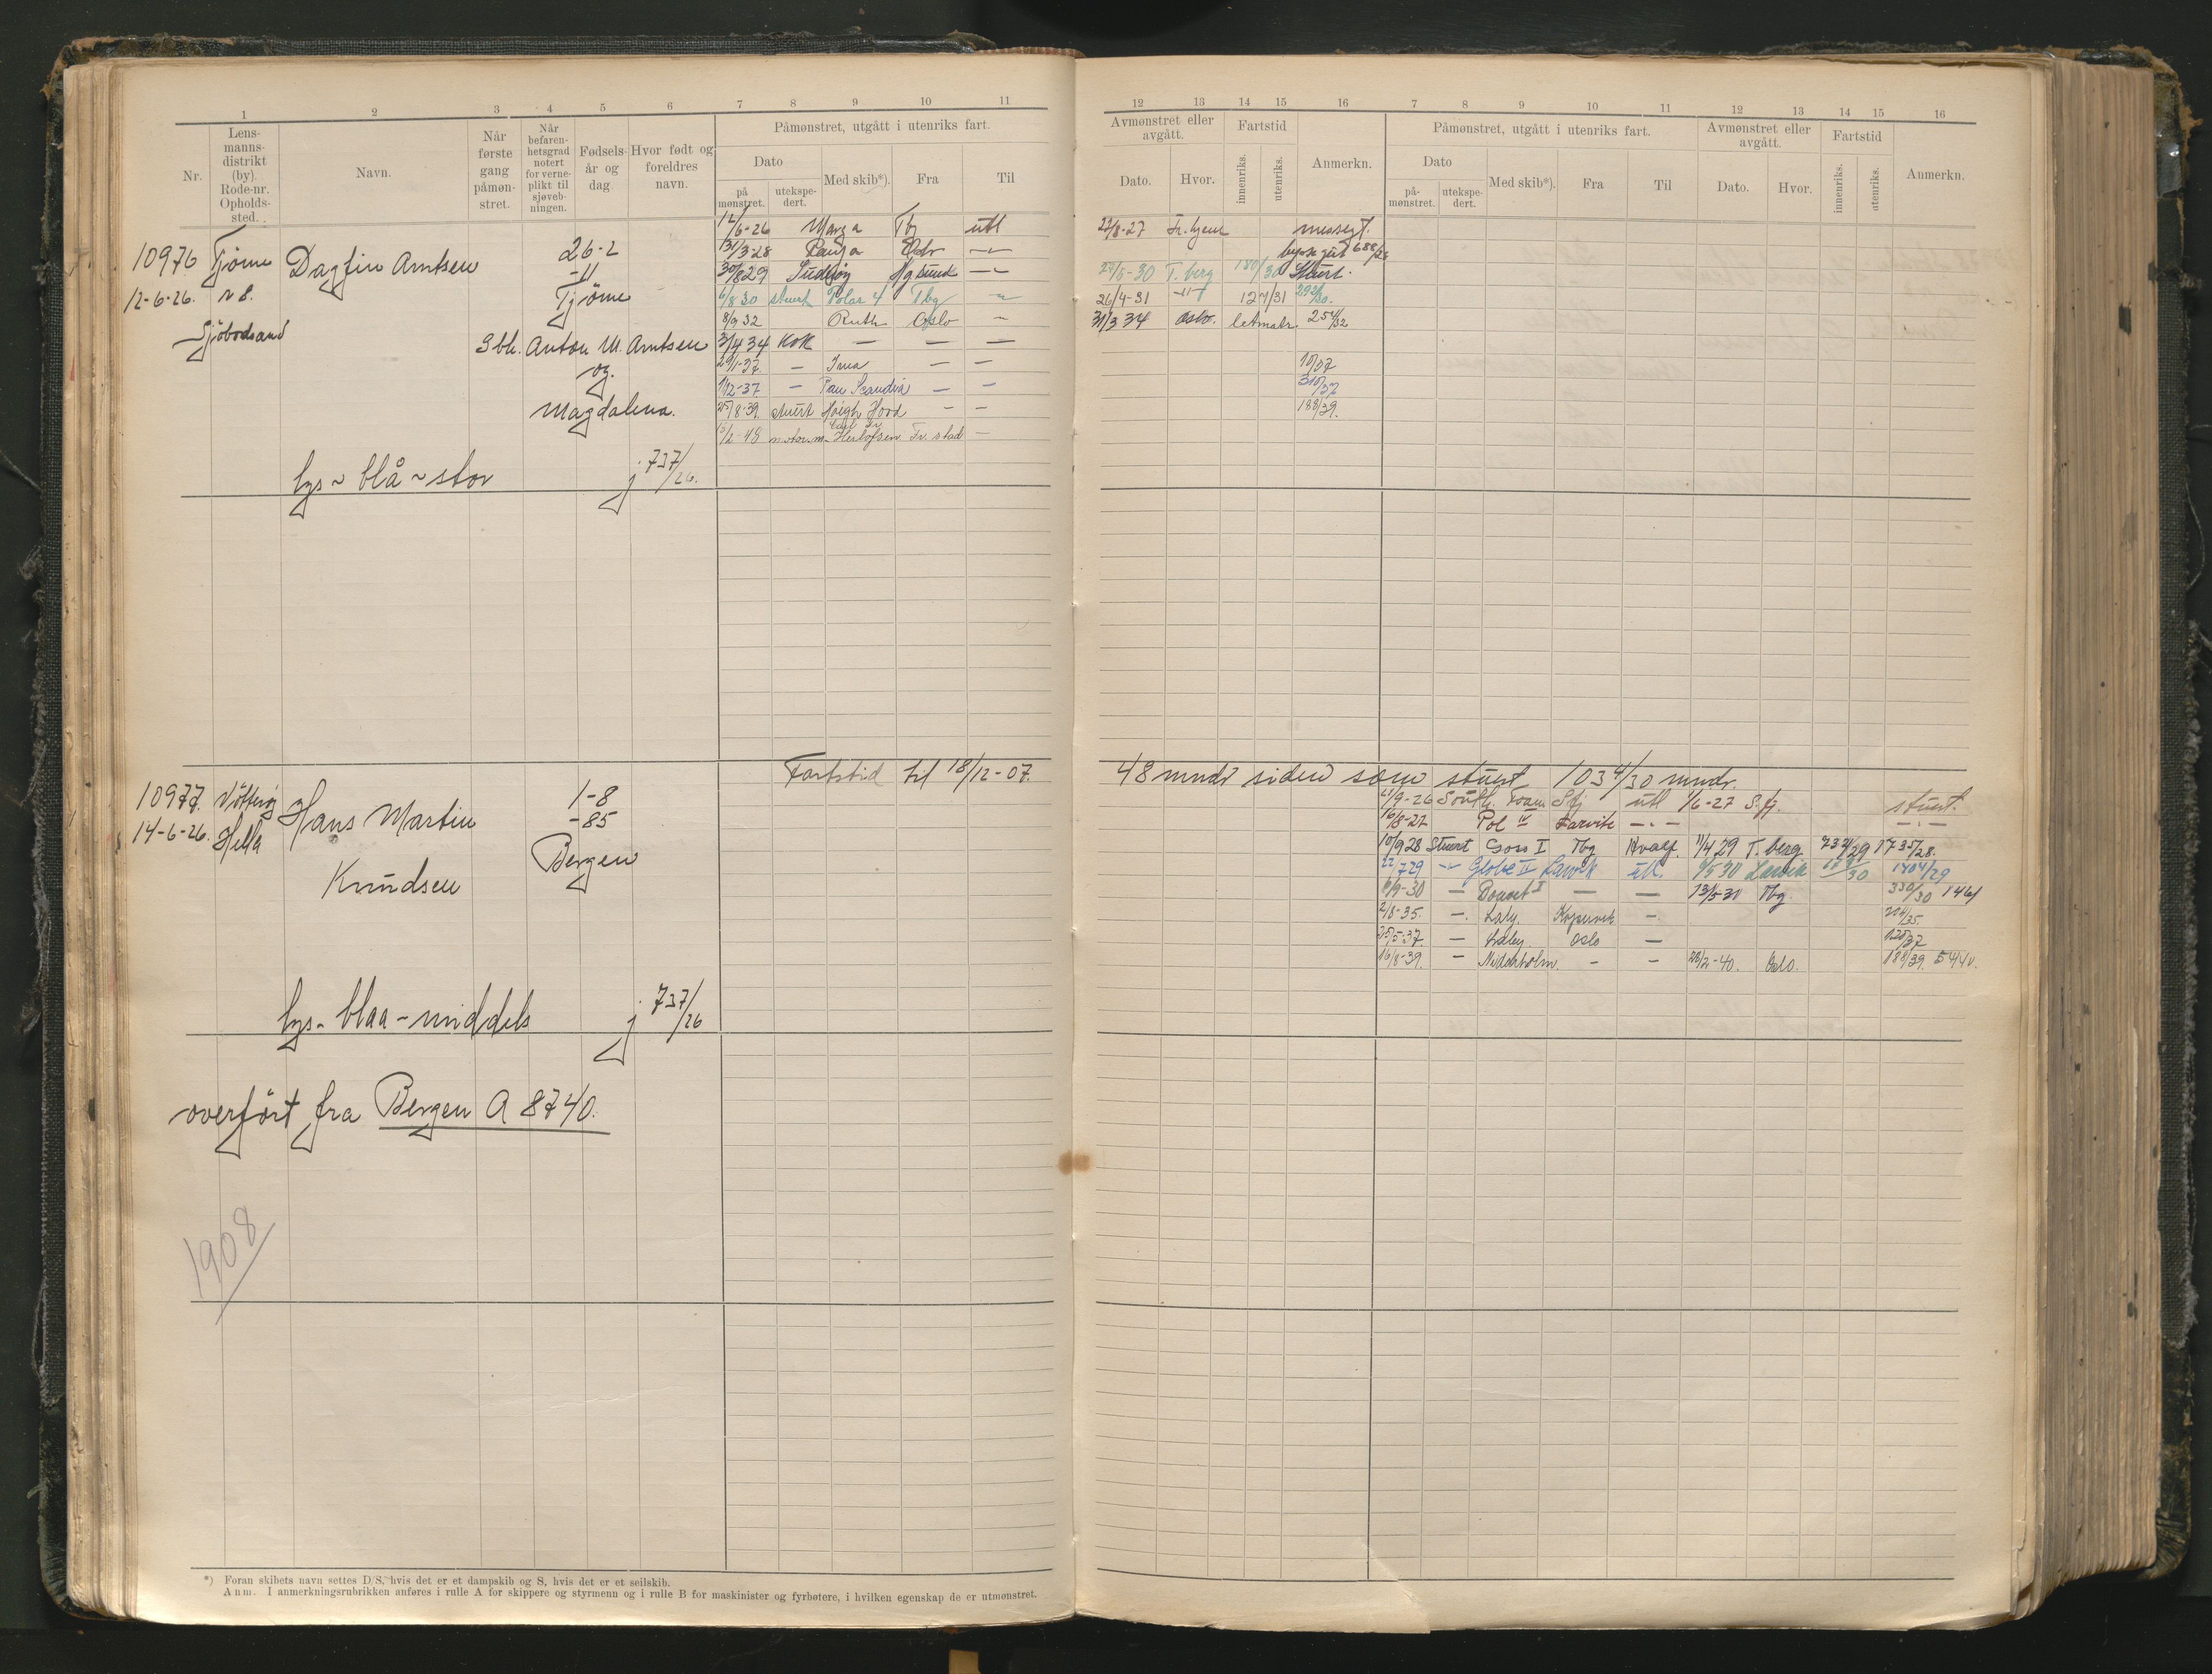 1 2 3 4 5 6 7 8 9 10 11
Nr.
Lens-
manns-
distrikt
(by).
Rode-nr.
Opholds-
sted.
Navn.
Når
første
gang
påmøn-
stret.
Når
befaren-
hetsgrad
notert
for verne-
plikt til
sjøveb-
ningen.
Fødsels-
år og
dag.
Hvor født og
foreldres
navn.
Påmønstret, utgått i utenriks fart.
Dato
på
mønstret.
utekspe-
dert.
Med skib*).
Fra
Til
10976 Tjøme Dagfin Arntsen 26-2
-11
12-6-26. n 8. Tjøme
Sjöbodsand
Gbh. Anton M. Arntsen
og
Magdalena.
lys ~ blå ~ stor j 737/26.
12/6-26 Marga Tbg utl
31/3-28 Ranja
30/8 29 Sydhav Hgsund
6/8 30 stuert Polar 4 Tbg
8/9 32 Ruth Oslo
3/4 34 Kok — — —
29/1-37. — Irma — —
1/12-37 — Tau Scandia — —
25/8-39. stuert Høegh Hood — —
13/2-48 motorm. Carl Fr. Herlofsen Fr.stad —
Fartstid til 18/12-07.
10977. Nøtterøy Hans Martin 1-8
-85
14-6-26. Hella Bergen
Knudsen
lys - blaa - middels j 737/26
overfört fra Bergen A 8740.
1908
*) Foran skibets navn settes D/S, hvis det er et dampskib og S, hvis det er et seilskib.
Anm. I anmerkningsrubrikken anføres i rulle A for skippere og styrmenn og i rulle B for maskinister og fyrbøtere, i hvilken egenskap de er utmønstret.
12 13 14 15 16 7 8 9 10 11 12 13 14 15 16
Avmønstret eller
avgått.
Dato.
Hvor.
Fartstid
innenriks.
utenriks.
Anmerkn.
Påmønstret, utgått i utenriks fart.
Dato
på-
mønstret.
utekspe-
dert.
Med skib*).
Fra
Til
Avmønstret eller
avgått.
Dato.
Hvor.
Fartstid
innenriks.
utenriks.
Anmerkn.
22/8-27 messegt.
byssegut 688/28
27/5-30 T.berg 180/30 Stuert.
26/4-31 —"— 127/31 292/30.
31/3 34 Oslo. letmatr. 254/32
10/37
310/37
188/39.
48 mndr siden som stuert 103 4/30 mndr.
/9-26 South. Foam Sfj utl 1/6-27 S.fj. stuert.
16/8-27 Pol IV Larvik —.— —.—
10/9 28 Stuert Coss I Tbg Hvalf. 11/4 29 T.berg 1735/28.
22/7 29 Globe II Larvik utl. 9/5 30 Larvik 1404/29
6/9-30 — Bouvet I — — 13/5 31 Tbg. 330/30 1461
2/8-35. — Laly Kopervik — 214/35.
25/5-37. — Laly Oslo — 125/37
16/8-39. — Nidarholm. — — 28/2-40. Oslo. 188/39. 5440.